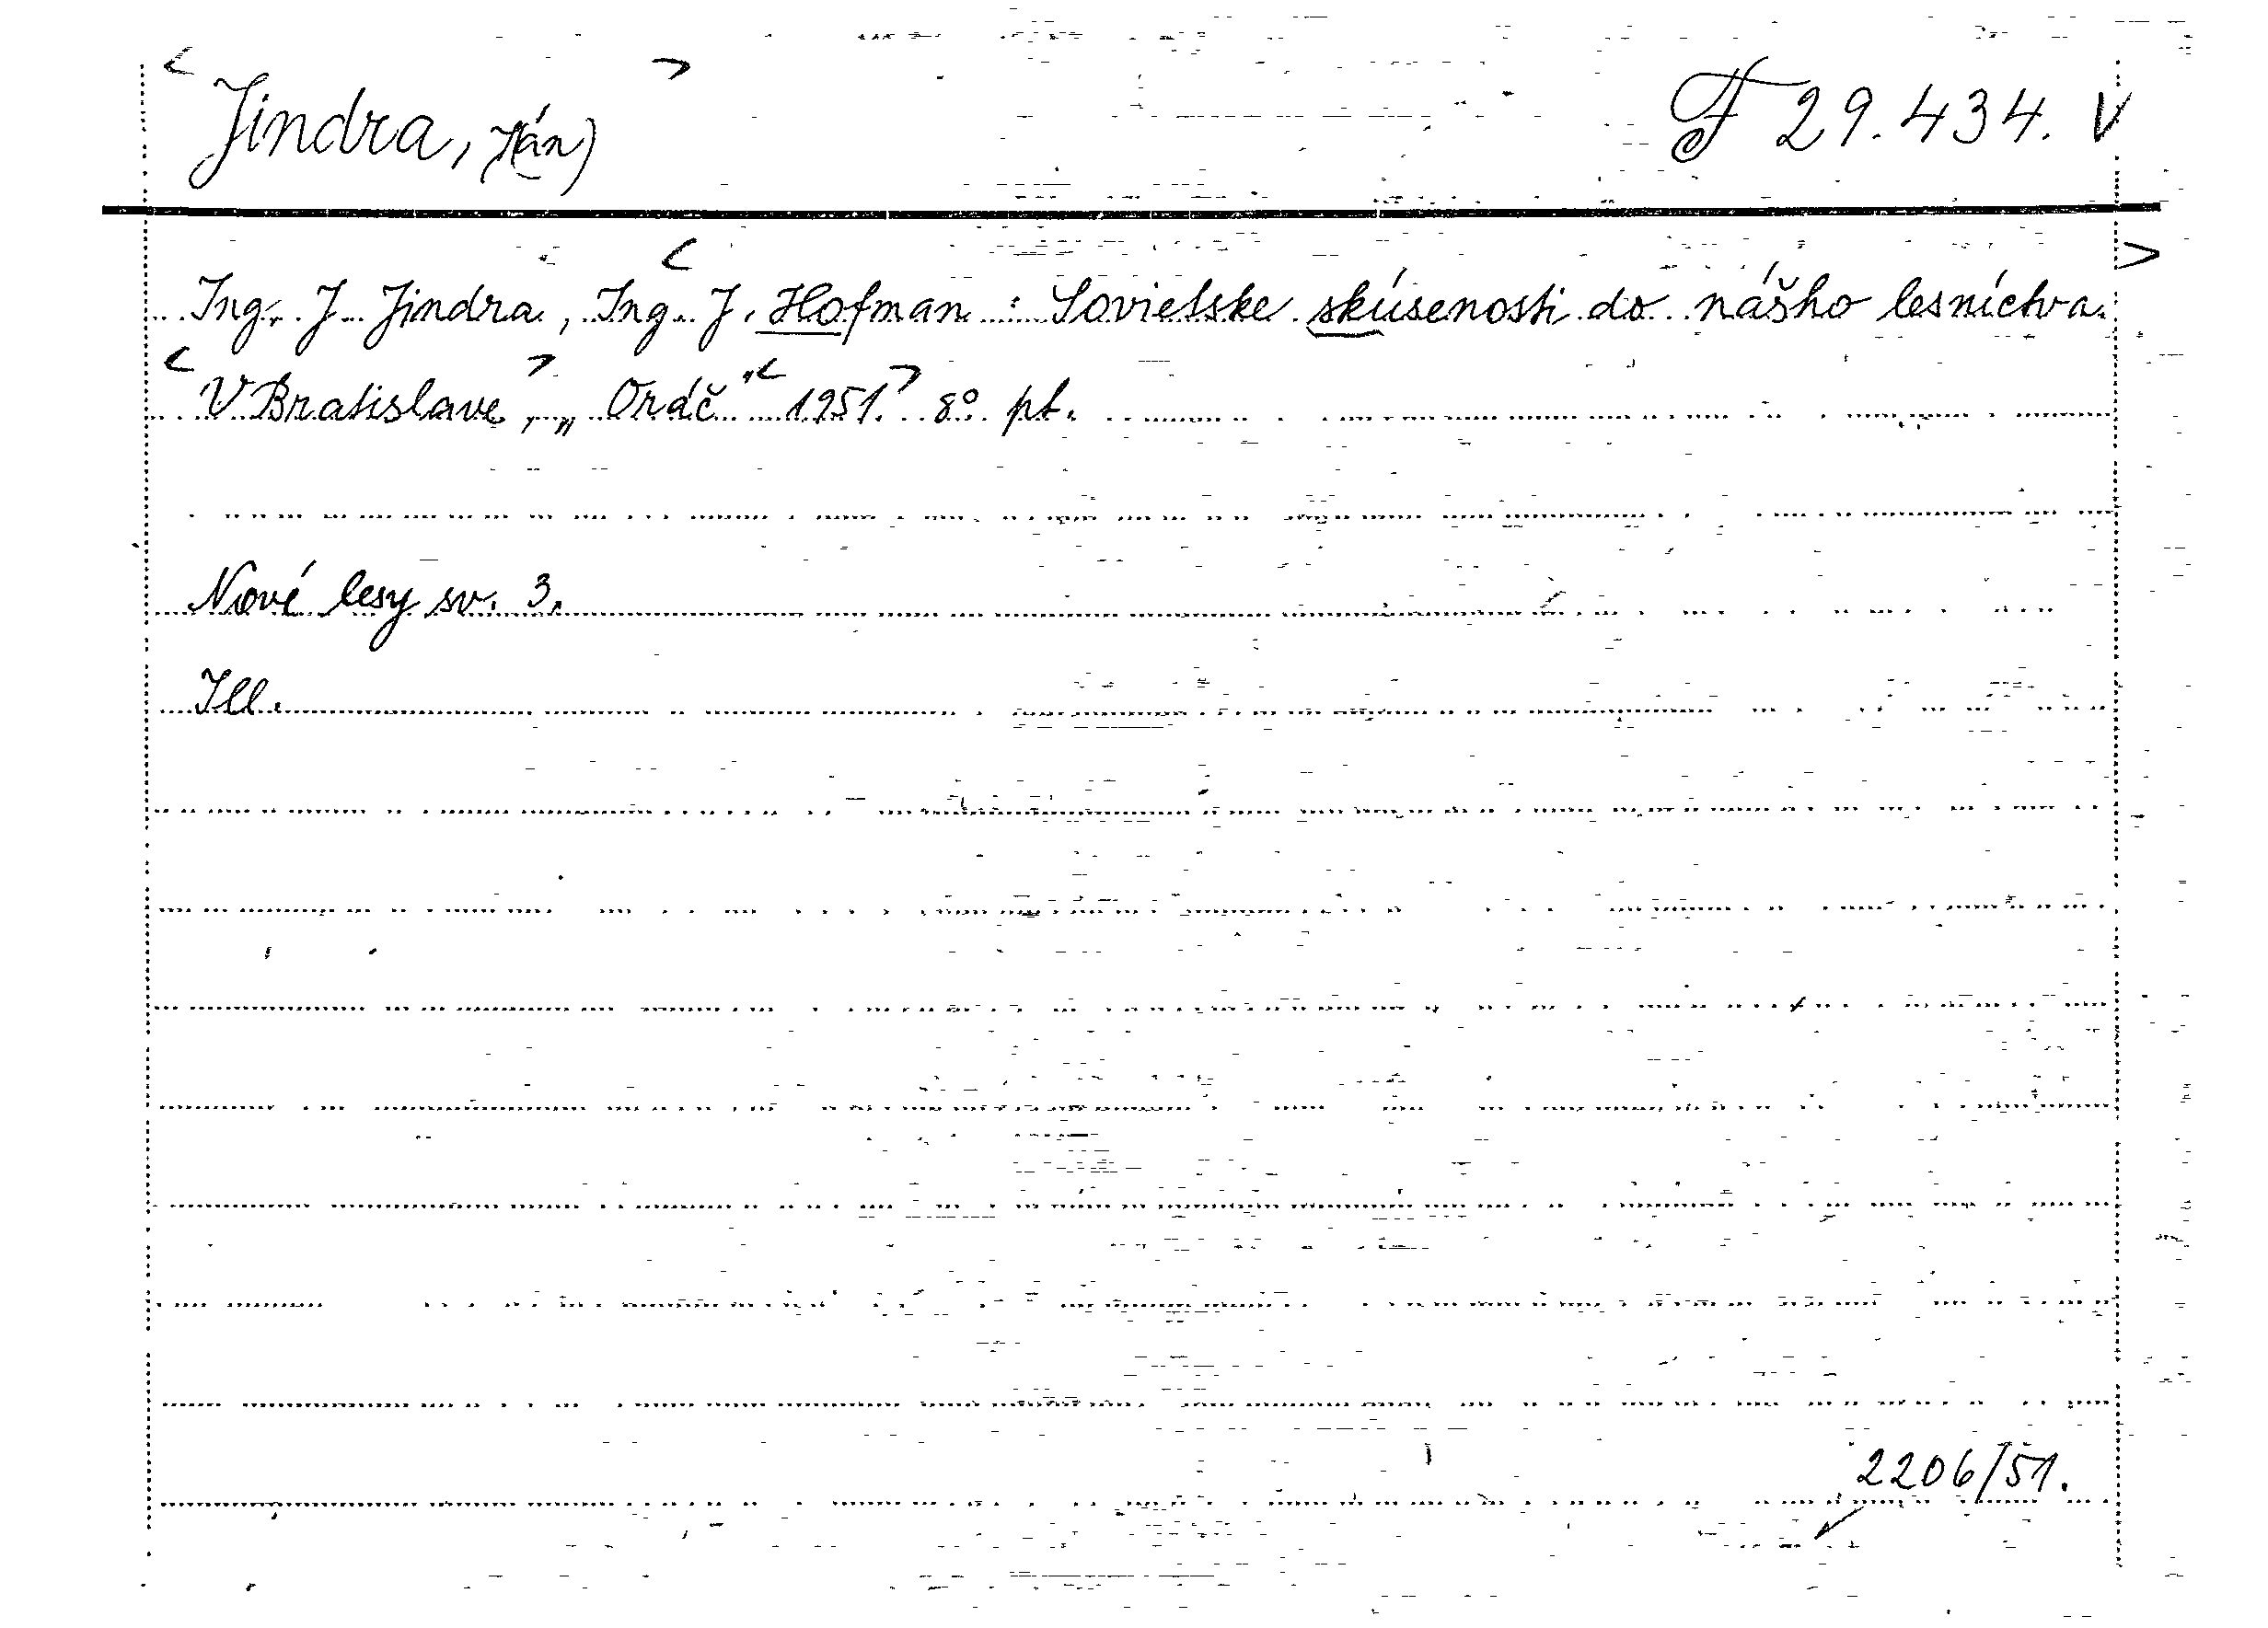 <Jindra, J(án)> F 29.434. V
Ing. J. Jindra, Ing. J. <Hofman : Sovietske skúsenosti do nášho lesníctva.>
<V Bratislave,> „Oráč" <1951.> 8° pt.
Nové lesy sv. 3.
Ill.
2206/51.